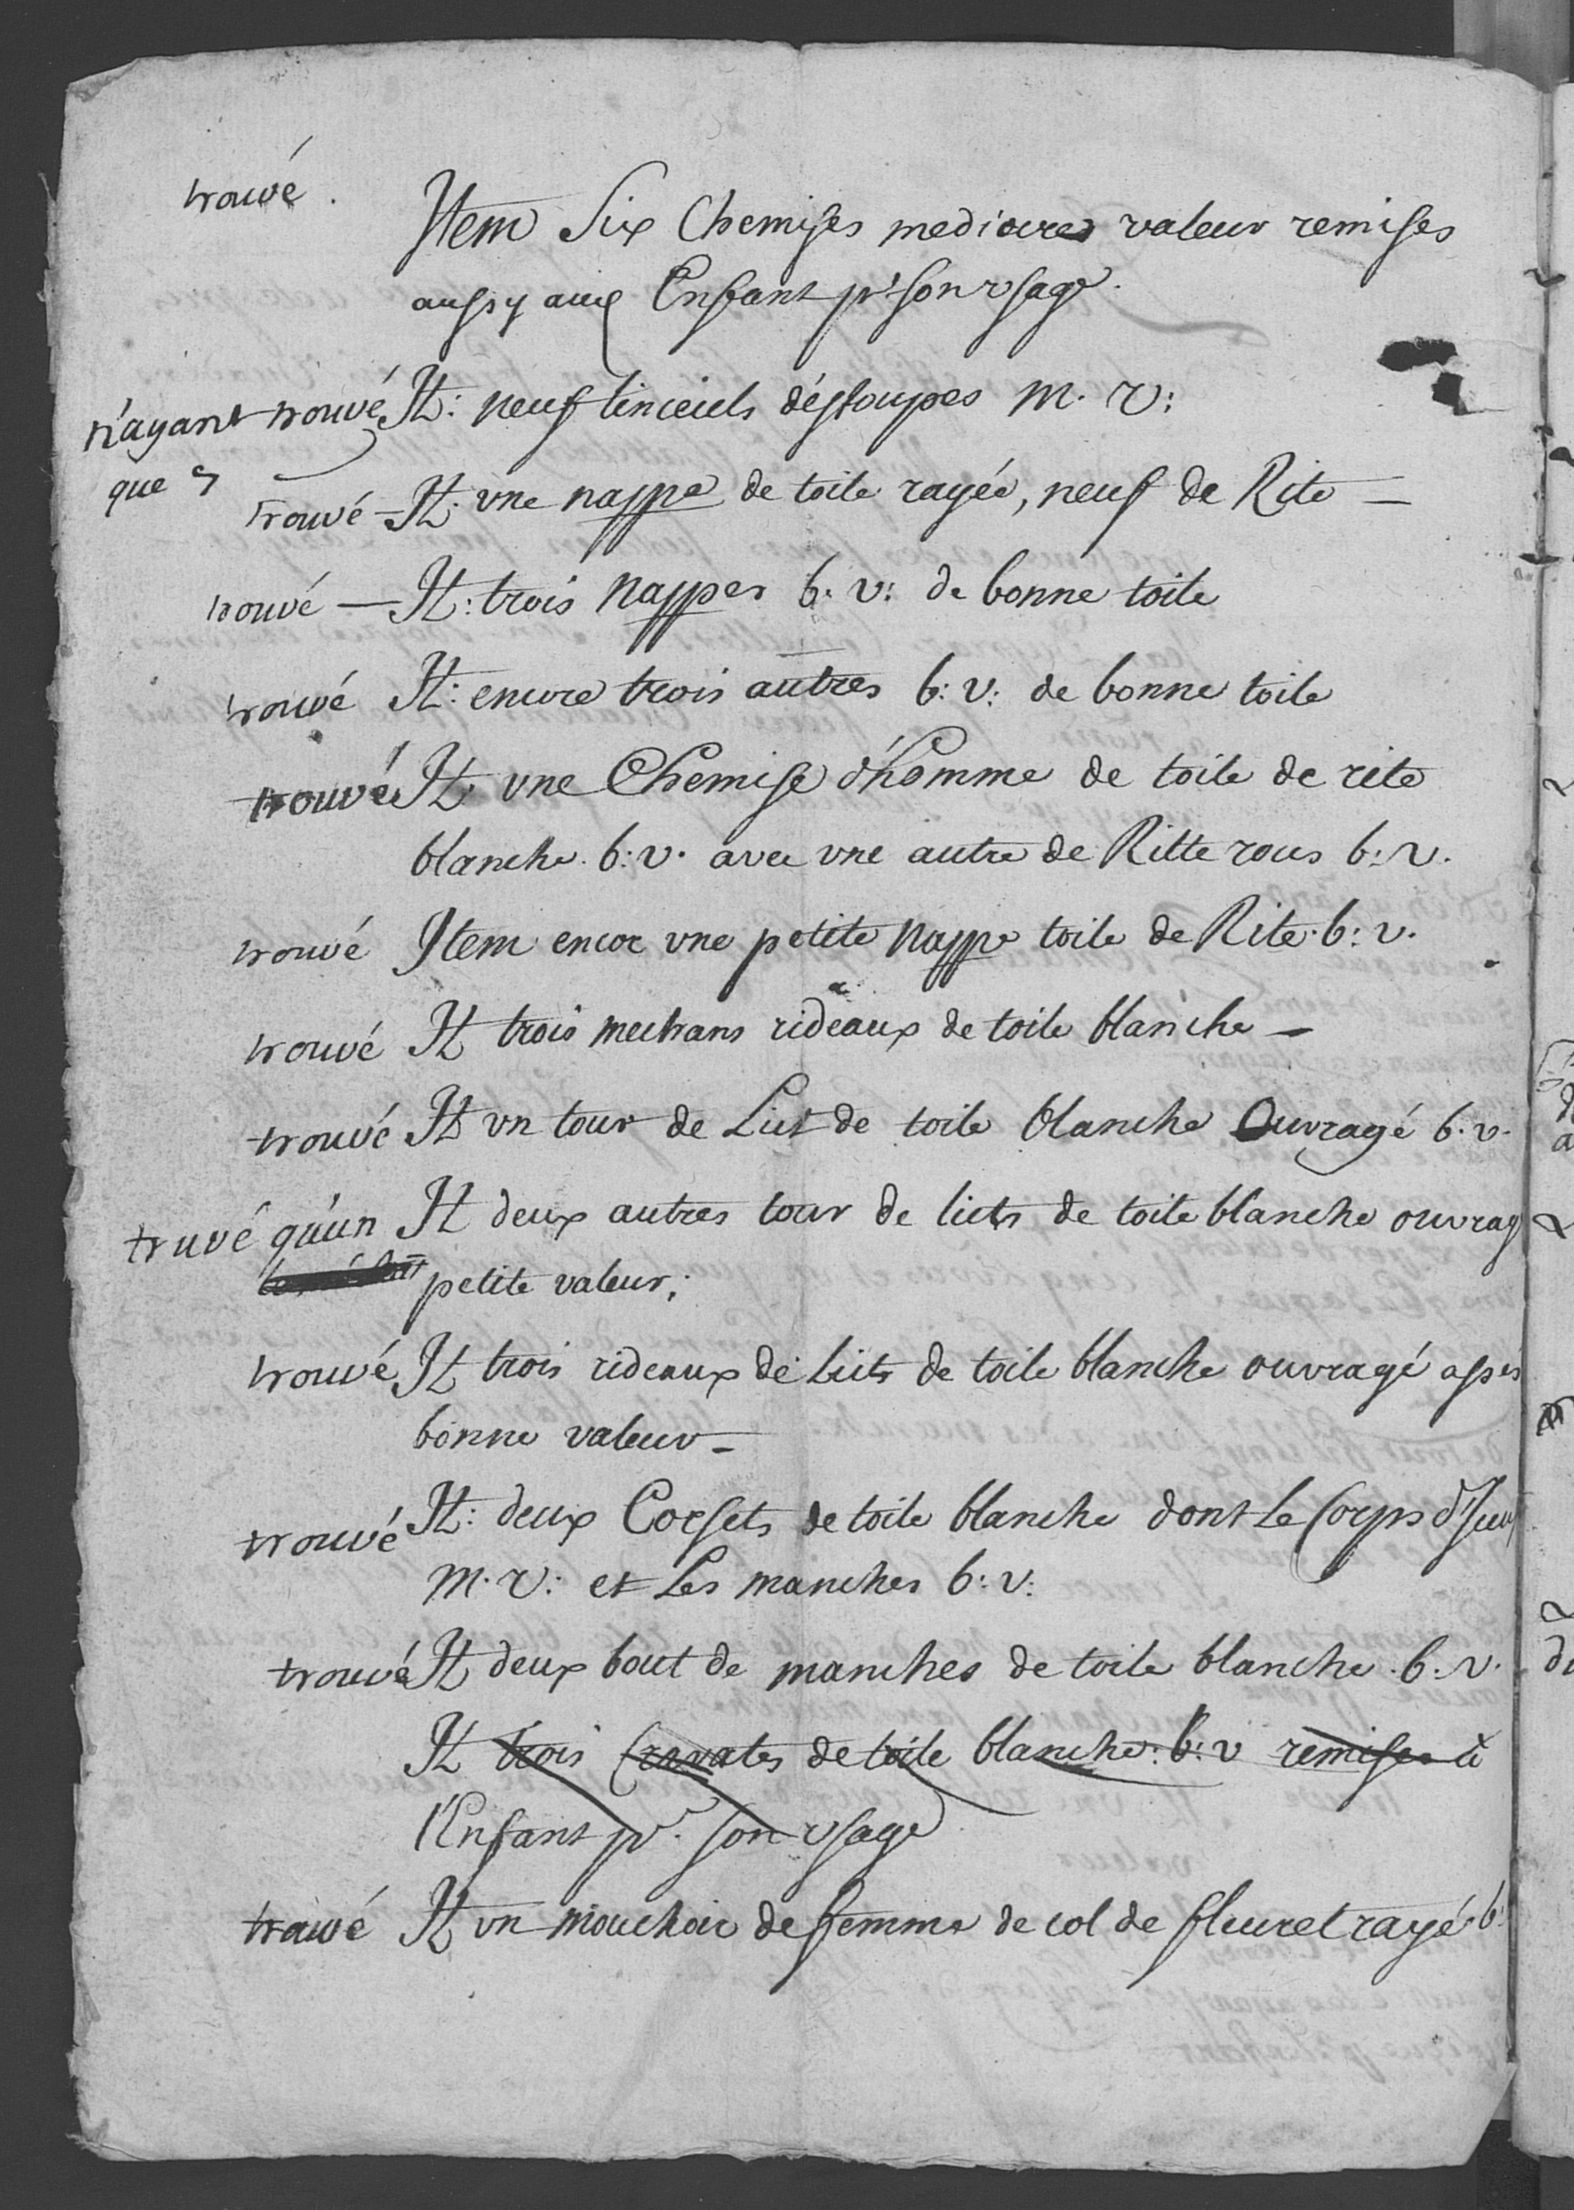 trouvé. Jtem Six Chemises mediocres valeur remises
aussy aux Enfant pr son vsage.
n'ayant trouvé Jt: neuf linceuls déstoupes m. v:
que 7
trouvé — Jt. vne nappe de toile rayée, neuf de Rite —
trouvé — Jt: trois nappes b. v: de bonne toile
trouvé Jt: encore trois autres b: v: de bonne toile
trouvé Jt. vne Chemise d'homme de toile de rite
blanche. b: v. avec vne autre de Ritte rous b: v.
trouvé Jtem encor vne petite nappe toile de Rite. b: v.
trouvé Jt trois mechans rideaux de toile blanche —
trouvé Jt vn tour de Lict de toile blanche Ouvragé b. v.
truvé qu'un Jt deux autres tour de licts de toile blanche ouvrag
petite valeur;
trouvé Jt trois rideaux de Licts de toile blanche ouvragé assés
bonne valeur —
trouvé Jt: deux Corsets de toile blanche dont le Corps d'Jceux
m. v: et Les manches b: v:
trouvé Jt deux bout de manches de toile blanche. b: v.
Jt trois Cravates de toile blanche: b: v remises à
l'Enfant pr. son vsage
trouvé Jt vn mouchoir de femme de col de fleuret rayé b: